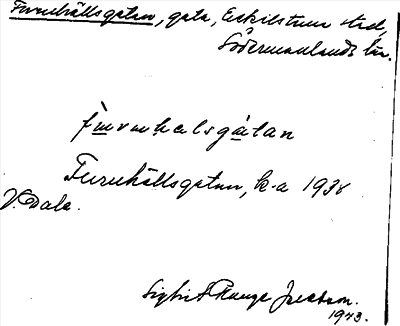 Furuhällsgatan, gata, Eskilstuna stad,
Södermanlands län.
Furuhällsgatan, k-a 1938
V. Dala.
Sigbrit Plænge Jacobson.
1943.